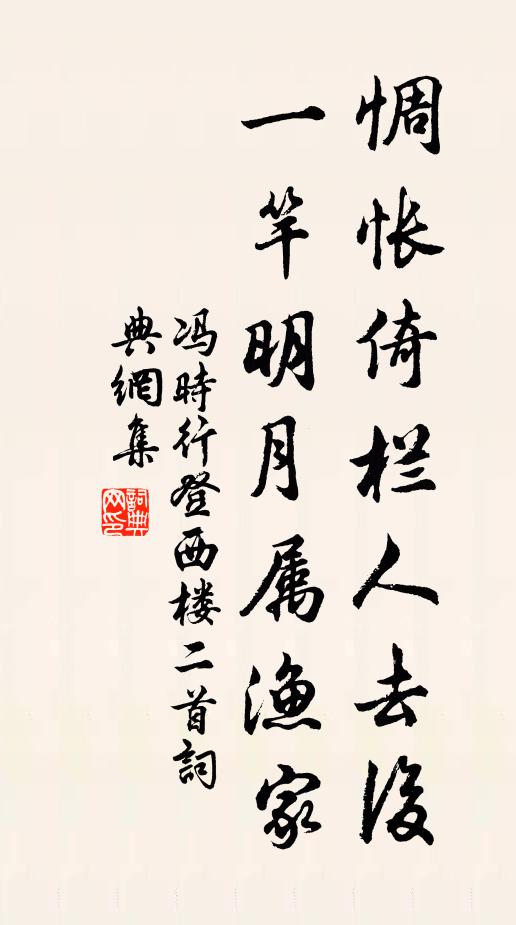 惆怅倚栏人去後
一竿明月属漁家
冯時行登西楼二首詞
典網集
詞典网印